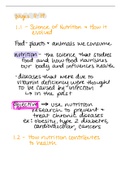 1.1 - Science of Nutrition + How it
evolved
Food: plants + animals we consume
nutrition - the science that studies
food and how food nourishes
our body and influences health
- diseases that were due to
vitamin deficiency were thought
to be caused by infection
in the past
→ use nutrition
research to prevent +
treat chronic diseases
ex: obesity, type 2 diabetes,
cardiovascular, cancers
1.2 - How nutrition contributes
to health